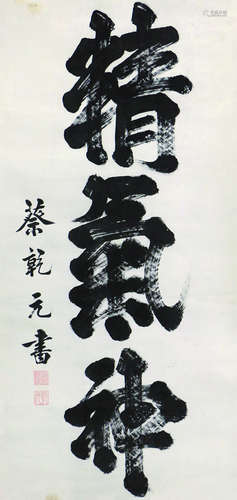 精氣神
蔡乾元書